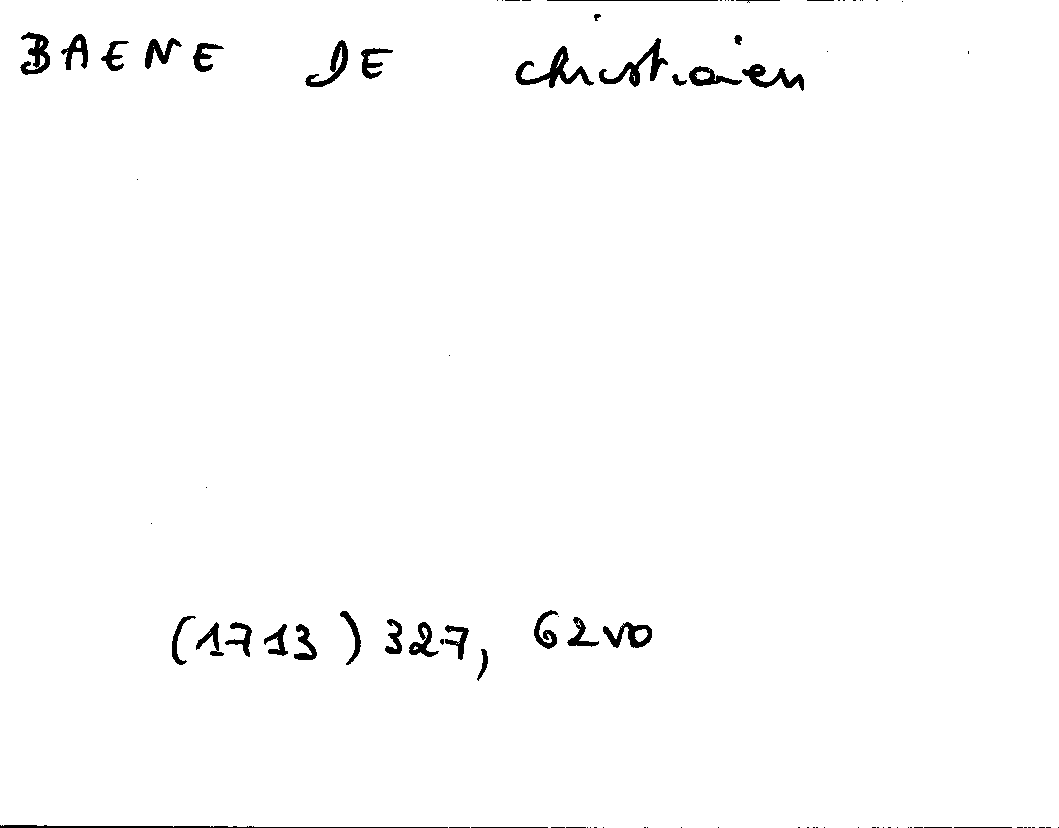 BAENE DE christiaen
(1713) 327, 62vo